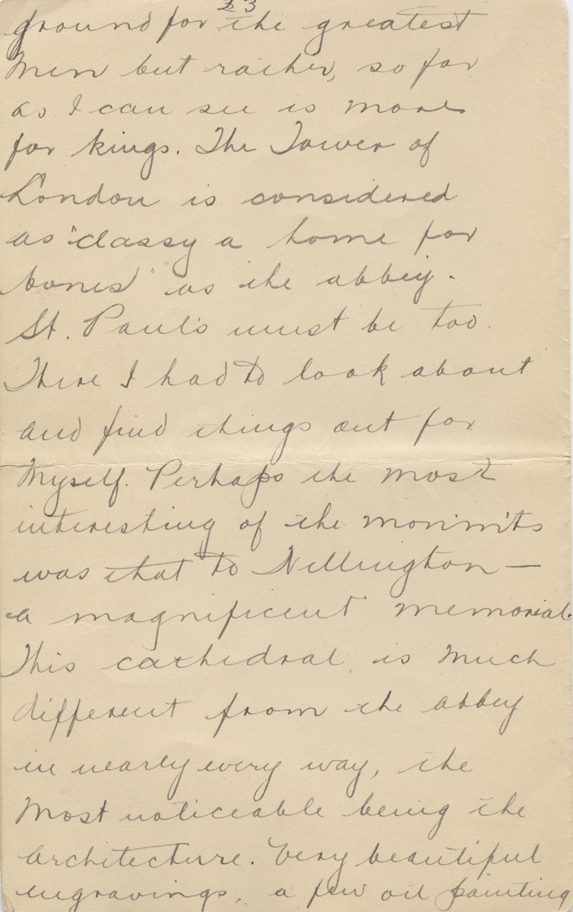 23
ground for the greatest
men but rather, so far
as I can see is more
for kings. The Tower of
London is considered
as "classy a home for
bones" as the abbey.
St. Paul's must be too.
There I had to look about
and find things out for
myself. Perhaps the most
interesting of the monm'ts
was that to Wellington —
a magnificent memorial.
This cathedral is much
different from the abbey
in nearly every way, the
most noticeable being the
architecture. Very beautiful
engravings, a few oil painting